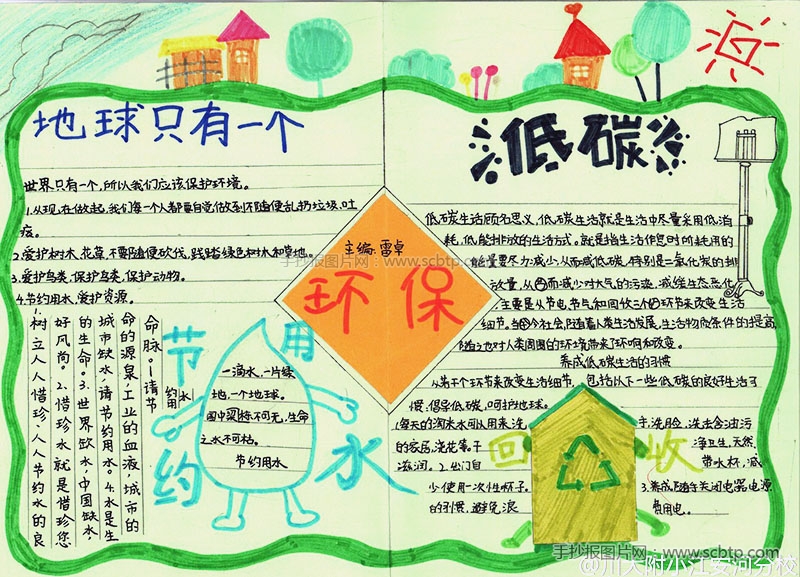 地球只有一个
世界只有一个,所以我们应该保护环境。
1.从现在做起,我们每一个人都要自觉做到不随便乱扔垃圾、吐
痰。
2.爱护树木,花草,不要随便砍伐,践踏绿色树木和草地。
3.爱护鸟类,保护鸟类,保护动物。
4.节约用水,爱护资源。
命脉。1.请节约用水
命的源泉工业的血液,城市的
城市缺水,请节约用水。4.水是生
的生命。3.世界缺水,中国缺水,
好风尚。2.惜珍水就是惜珍您
1.树立人人惜珍、人人节约水的良
节约用水
一滴水,一片绿
地,一个地球。
国中梁栋不可无,生命
之水不可枯。
节约用水
主编:雷卓
环保
手抄报图片网:www.scbtp.com
低碳
低碳生活顾名思义,低碳生活就是生活中尽量采用低消
耗,低能排放的生活方式。就是指生活作息时所耗用的
能量要尽力减少,从而减低碳,特别是二氧化碳的排
放量,从而减少对大气的污染,减缓生态恶化
主要是从节电,节气和回收三个环节来改变生活
细节。当今社会,随着人类生活发展,生活物质条件的提高
随之也对人类周围的环境带来了影响和改变。
养成低碳生活的习惯
从若干个环节来改变生活细节,包括以下一些低碳的良好生活习
惯,倡导低碳,呵护地球。
1.每天的淘米水可以用来洗手,洗脸,洗去含油污
的家居,浇花等。干净卫生,天然
滋润。2.出门自带水杯,减
少使用一次性杯子。3.养成随手关闭电器电源
的习惯,避免浪费用电。
回收
手抄报图片网:www.scbtp.com
@川大附小江安河分校